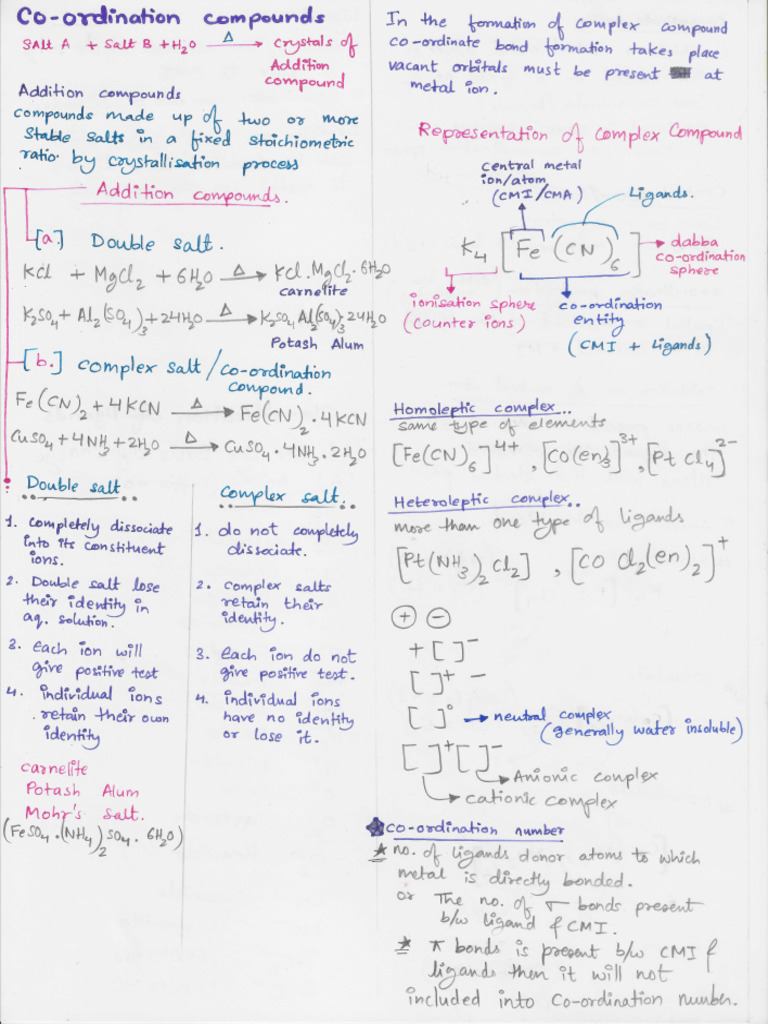 Co-ordination compounds
Salt A + Salt B + H2O —Δ→ crystals of
Addition
compound
Addition compounds
compounds made up of two or more
stable salts in a fixed stoichiometric
ratio by crystallisation process
Addition compounds.
[a.] Double salt.
KCl + MgCl2 + 6H2O —Δ→ KCl.MgCl2.6H2O
carnelite
K2SO4 + Al2(SO4)3 + 24H2O —Δ→ K2SO4 Al2(SO4)3 24H2O
Potash Alum
[b.] complex salt / co-ordination
compound.
Fe(CN)2 + 4KCN —Δ→ Fe(CN)2 . 4KCN
CuSO4 + 4NH3 + 2H2O —Δ→ CuSO4 . 4NH3 . 2H2O
Double salt
1. completely dissociate
into its constituent
ions.
2. Double salt lose
their identity in
aq. solution.
3. Each ion will
give positive test
4. individual ions
retain their own
identity
carnelite
Potash Alum
Mohr's salt.
(FeSO4 . (NH4)2 SO4 . 6H2O)
complex salt.
1. do not completely
dissociate.
2. complex salts
retain their
identity.
3. Each ion do not
give positive test.
4. individual ions
have no identity
or lose it.
In the formation of complex compound
co-ordinate bond formation takes place
vacant orbitals must be present at
metal ion.
Representation of Complex Compound
central metal
ion/atom
(CMI/CMA)
Ligands.
K4 [Fe (CN)6]
dabba
co-ordination
sphere
ionisation sphere
(counter ions)
co-ordination
entity
(CMI + Ligands)
Homoleptic complex..
same type of elements
[Fe(CN)6]4+, [Co(en)3]3+, [Pt Cl4]2-
Heteroleptic complex..
more than one type of ligands
[Pt(NH3)2 Cl2] , [CO Cl2(en)2]+
⊕ ⊖
+ [ ]-
[ ]+ -
[ ]° → neutral complex
(generally water insoluble)
[ ]+ [ ]-
Anionic complex
cationic complex
★ co-ordination number
★ no. of ligands donor atoms to which
metal is directly bonded.
or The no. of σ bonds present
b/w ligand & CMI.
★ π bonds is present b/w CMI &
ligands then it will not
included into Co-ordination number.